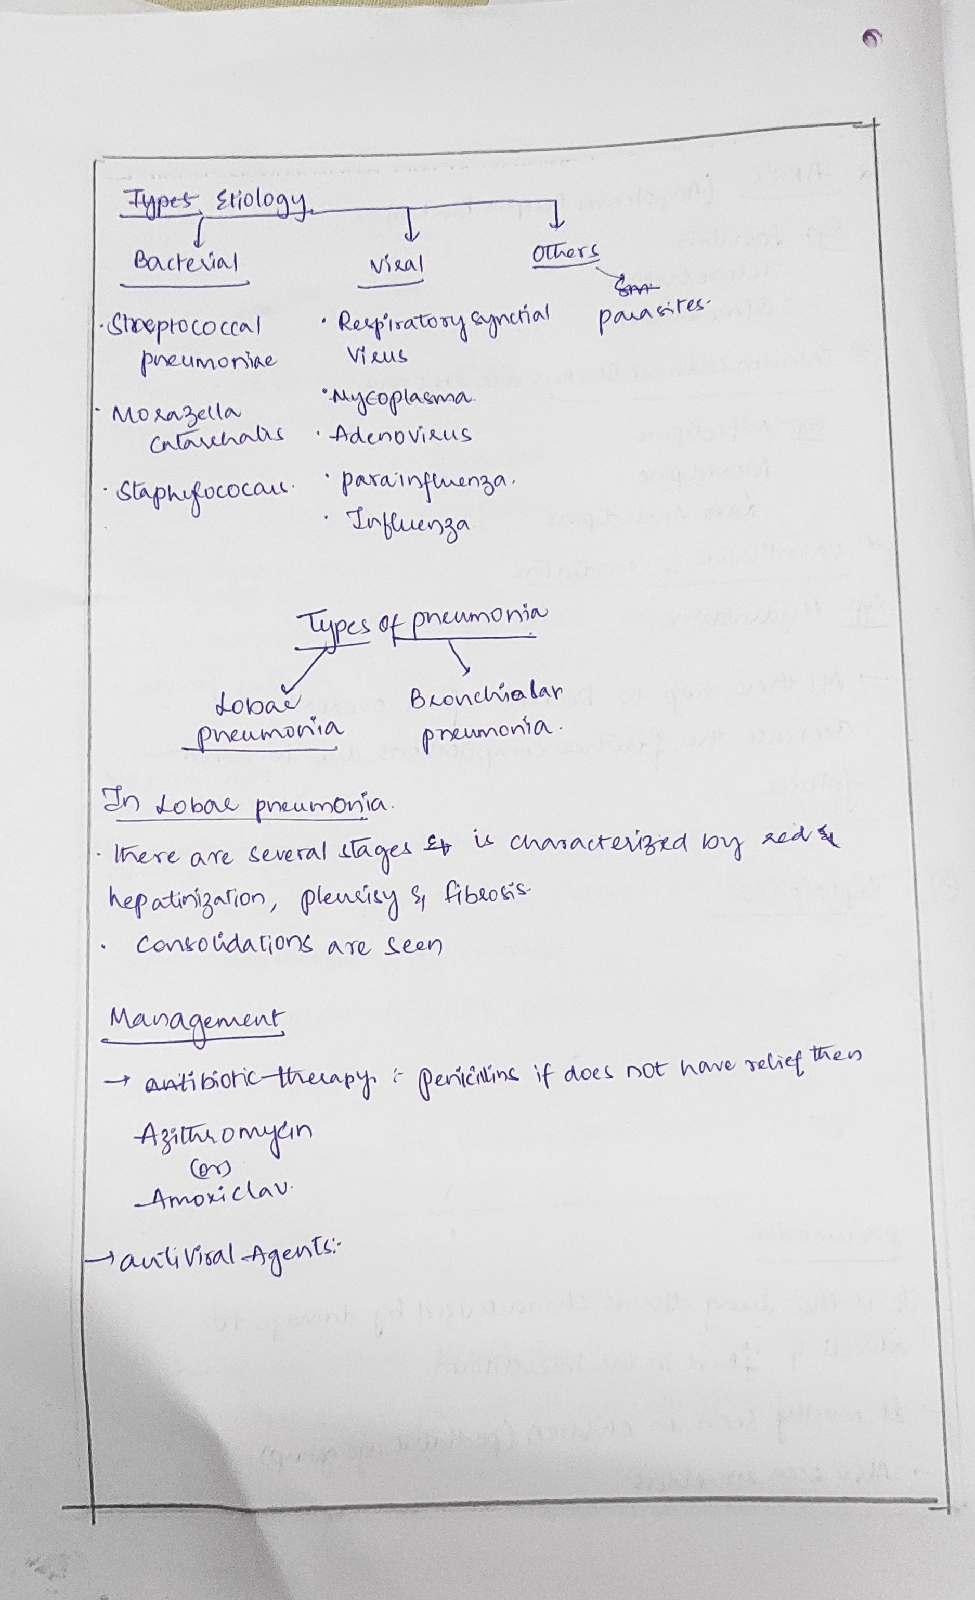 Types Etiology
Bacterial
Viral
Others
parasites.
· Streptococcal
pneumoniae
· Respiratory synctial
Virus
· Moraxella
Catarrhalis
· Mycoplasma
· Adenovirus
· Staphylococcus.
· parainfluenza.
· Influenza
Types of pneumonia
Lobar
pneumonia
Bronchialar
pneumonia.
In Lobar pneumonia.
· There are several stages & is characterized by red &
hepatinization, pleurisy & fibrosis.
· Consolidations are seen
Management
→ antibiotic therapy :- penicillins if does not have relief then
Azithromycin
(or)
Amoxiclav.
→ antiviral Agents:-